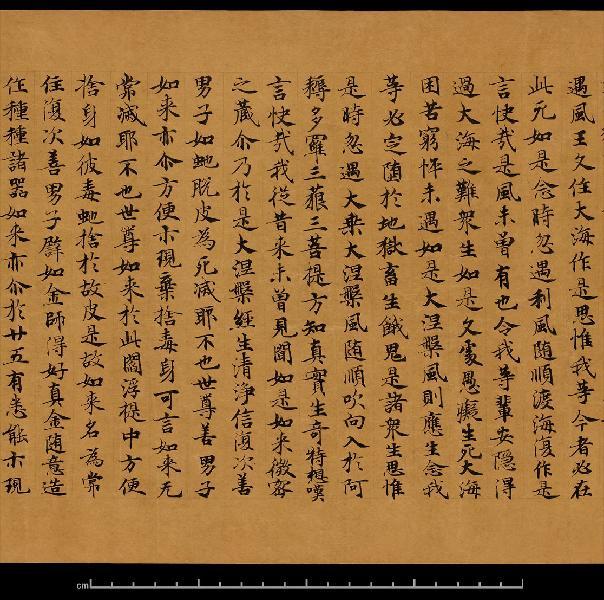 遇風王久住大海作是思惟我等今者必在
此死如是念時忽遇利風随順渡海復作是
言快哉是風未曽有也令我等輩安隠得
過大海之難衆生如是久處愚癡生死大海
困苦窮悴未遇如是大涅槃風則應生念我
等必定随於地獄畜生餓鬼是諸衆生思惟
是時忽遇大乗大涅槃風随順吹向入於阿
耨多羅三藐三菩提方知真實生奇特想嘆
言快哉我従昔来未曽見聞如是如来微密
之蔵尒乃於是大涅槃經生清浄信復次善
男子如虵脱皮為死滅耶不也世尊善男子
如来亦尒方便示現棄捨毒身可言如来无
常滅耶不也世尊如来於此閻浮提中方便
捨身如彼毒虵捨於故皮是故如来名為常
住復次善男子譬如金師得好真金随意造
作種種諸器如来亦尒於廿五有悉能示現